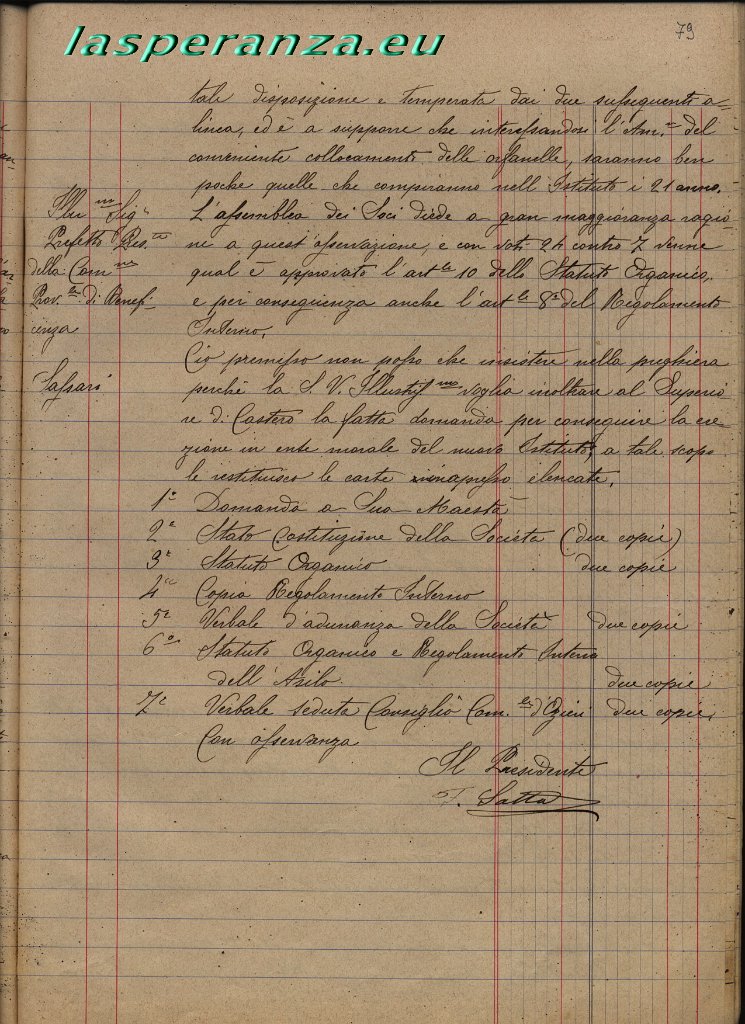 lasperanza.eu
79
tale disposizione e temperata dai due susseguenti a-
linea, ed è a supporre che interessandosi l'Am.ne del
conveniente collocamento delle orfanelle, saranno ben
poche quelle che compiranno nell'Istituto i 21 anno.
L'assemblea dei Soci diede a gran maggioranza ragio-
ne a quest'osservazione, e con voti 24 contro 7 venne
qual è approvato l'art.le 10 dello Statuto Organico,
e per conseguenza anche l'art.le 8° del Regolamento
Interno.
Ciò premesso non posso che insistere nella preghiera
perchè la S. V. Illustrss.mo voglia inoltrare al Superio-
re di Castero la fatta domanda per conseguire la ere-
zione in ente morale del nuovo Istituto; a tale scopo
le restituisco le carte inapresso elencate.
Illu.mo Sig.r
Prefetto Pres.te
della Com.ne
Prov.le di Benefi-
cenza
Sassari
1° Domanda a Sua Maestà
2° Stato Costituzione della Società (due copie)
3° Statuto Organico due copie
4° Copia Regolamento Interno
5° Verbale d'adunanza della Società due copie
6° Statuto Organico e Regolamento Interno
dell'Asilo due copie
7° Verbale seduta Consiglio Com.le d'Ozieri due copie,
Con osservanza
Il Presidente
Satta